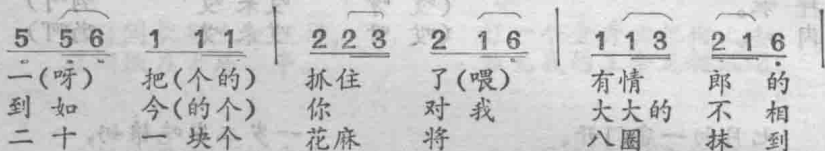 5 5 6 1 1 1 | 2 2 3 2 1 6 | 1 1 3 2 1 6 |
一(呀) 把(个的) 抓住 了(喂) 有情 郎 的
到 如 今(的个) 你 对 我 大大的 不 相
二 十 一 块个 花麻 将 八圈 抹 到